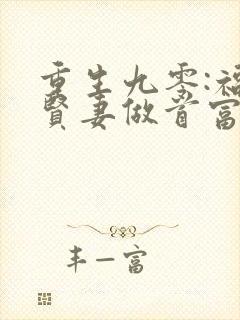 重生九零:福
贤妻做首富
丰一富